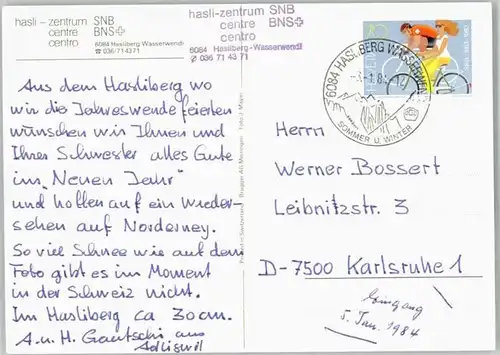 hasli-zentrum SNB
centre BNS+
centro
6084 Hasliberg Wasserwendi
☎ 036/71 43 71
hasli-zentrum SNB
centre BNS+
centro
6084 Hasliberg-Wasserwendi
036 71 43 71
Aus dem Hasliberg wo
wir die Jahreswende feierten
wünschen wir Ihnen und
Ihrer Schwester alles Gute
im "Neuen Jahr"
und hoffen auf ein Wieder-
sehen auf Norderney.
So viel Schnee wie auf dem
Foto gibt es im Moment
in der Schweiz nicht.
Im Hasliberg ca 30cm.
A. u. H. Gautschi aus
Adliswil
HELVETIA
6084 HASLIBERG WASSERWENDI
SOMMER U. WINTER
Herrn
Werner Bossert
Leibnitzstr. 3
D-7500 Karlsruhe 1
Eingang
5. Jan. 1984